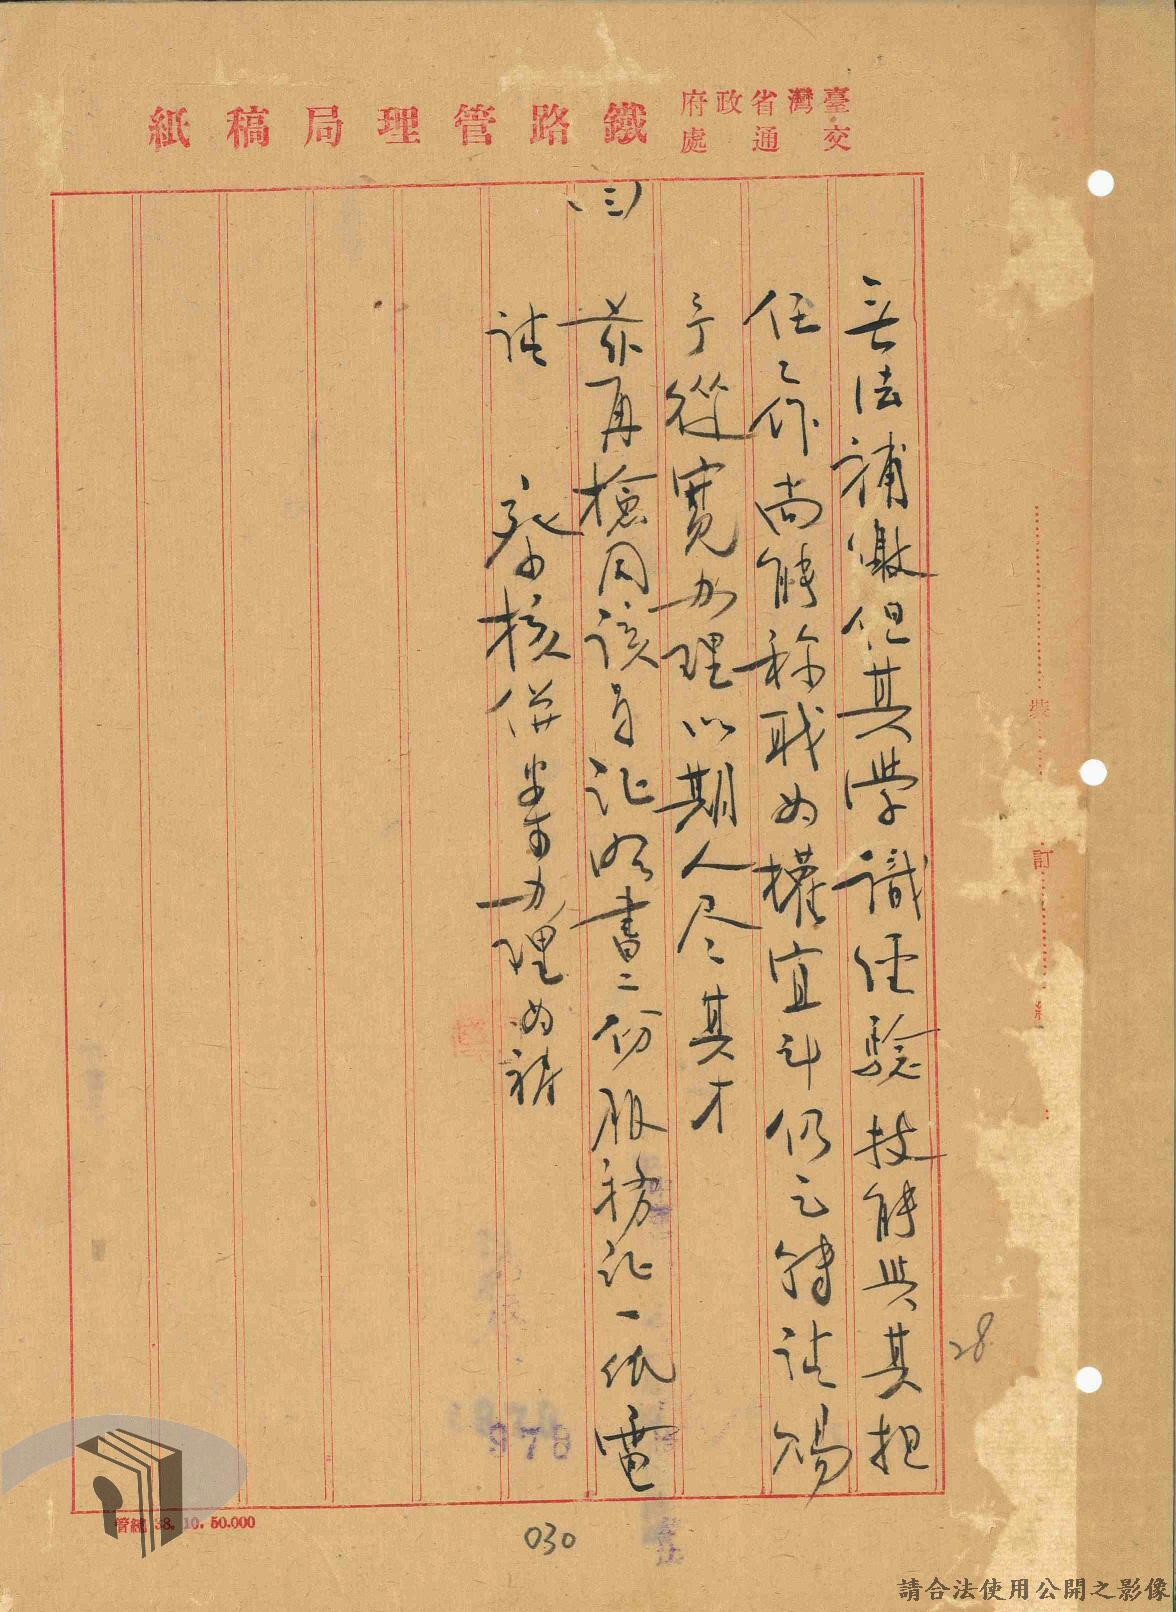 臺灣省政府
交通處
鐵路管理局稿紙
無法補繳但其學識經驗技能與其担
任工作尚能称職为權宜計仍乞特請賜
予從寬办理以期人尽其才
(三)茲再檢同該員証明書二份服務証一紙電
請
察核併案办理为禱
裝
訂
線
28
978
030
管總 38. 10. 50.000
請合法使用公開之影像